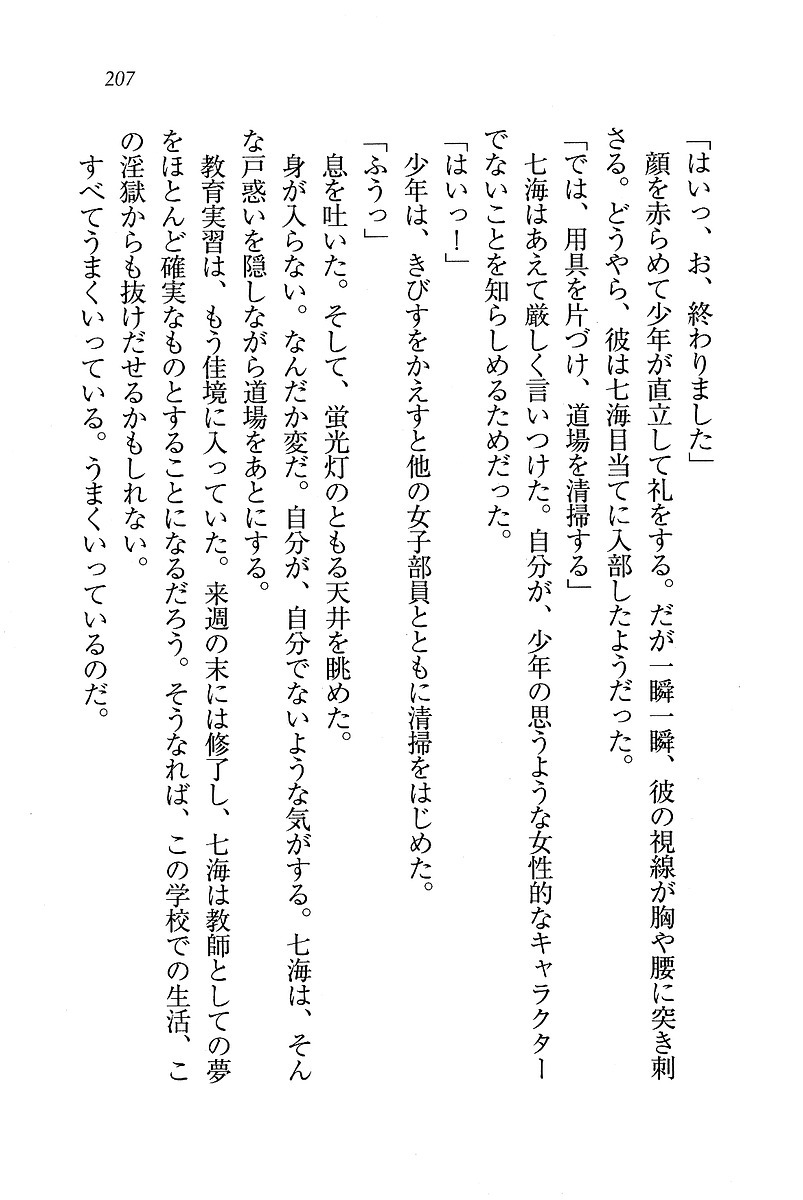 207
「はいっ、お、終わりました」
顔を赤らめて少年が直立して礼をする。だが一瞬一瞬、彼の視線が胸や腰に突き刺
さる。どうやら、彼は七海目当てに入部したようだった。
「では、用具を片づけ、道場を清掃する」
七海はあえて厳しく言いつけた。自分が、少年の思うような女性的なキャラクター
でないことを知らしめるためだった。
「はいっ！」
少年は、きびすをかえすと他の女子部員とともに清掃をはじめた。
「ふうっ」
息を吐いた。そして、蛍光灯のともる天井を眺めた。
身が入らない。なんだか変だ。自分が、自分でないような気がする。七海は、そん
な戸惑いを隠しながら道場をあとにする。
教育実習は、もう佳境に入っていた。来週の末には修了し、七海は教師としての夢
をほとんど確実なものとすることになるだろう。そうなれば、この学校での生活、こ
の淫獄からも抜けだせるかもしれない。
すべてうまくいっている。うまくいっているのだ。